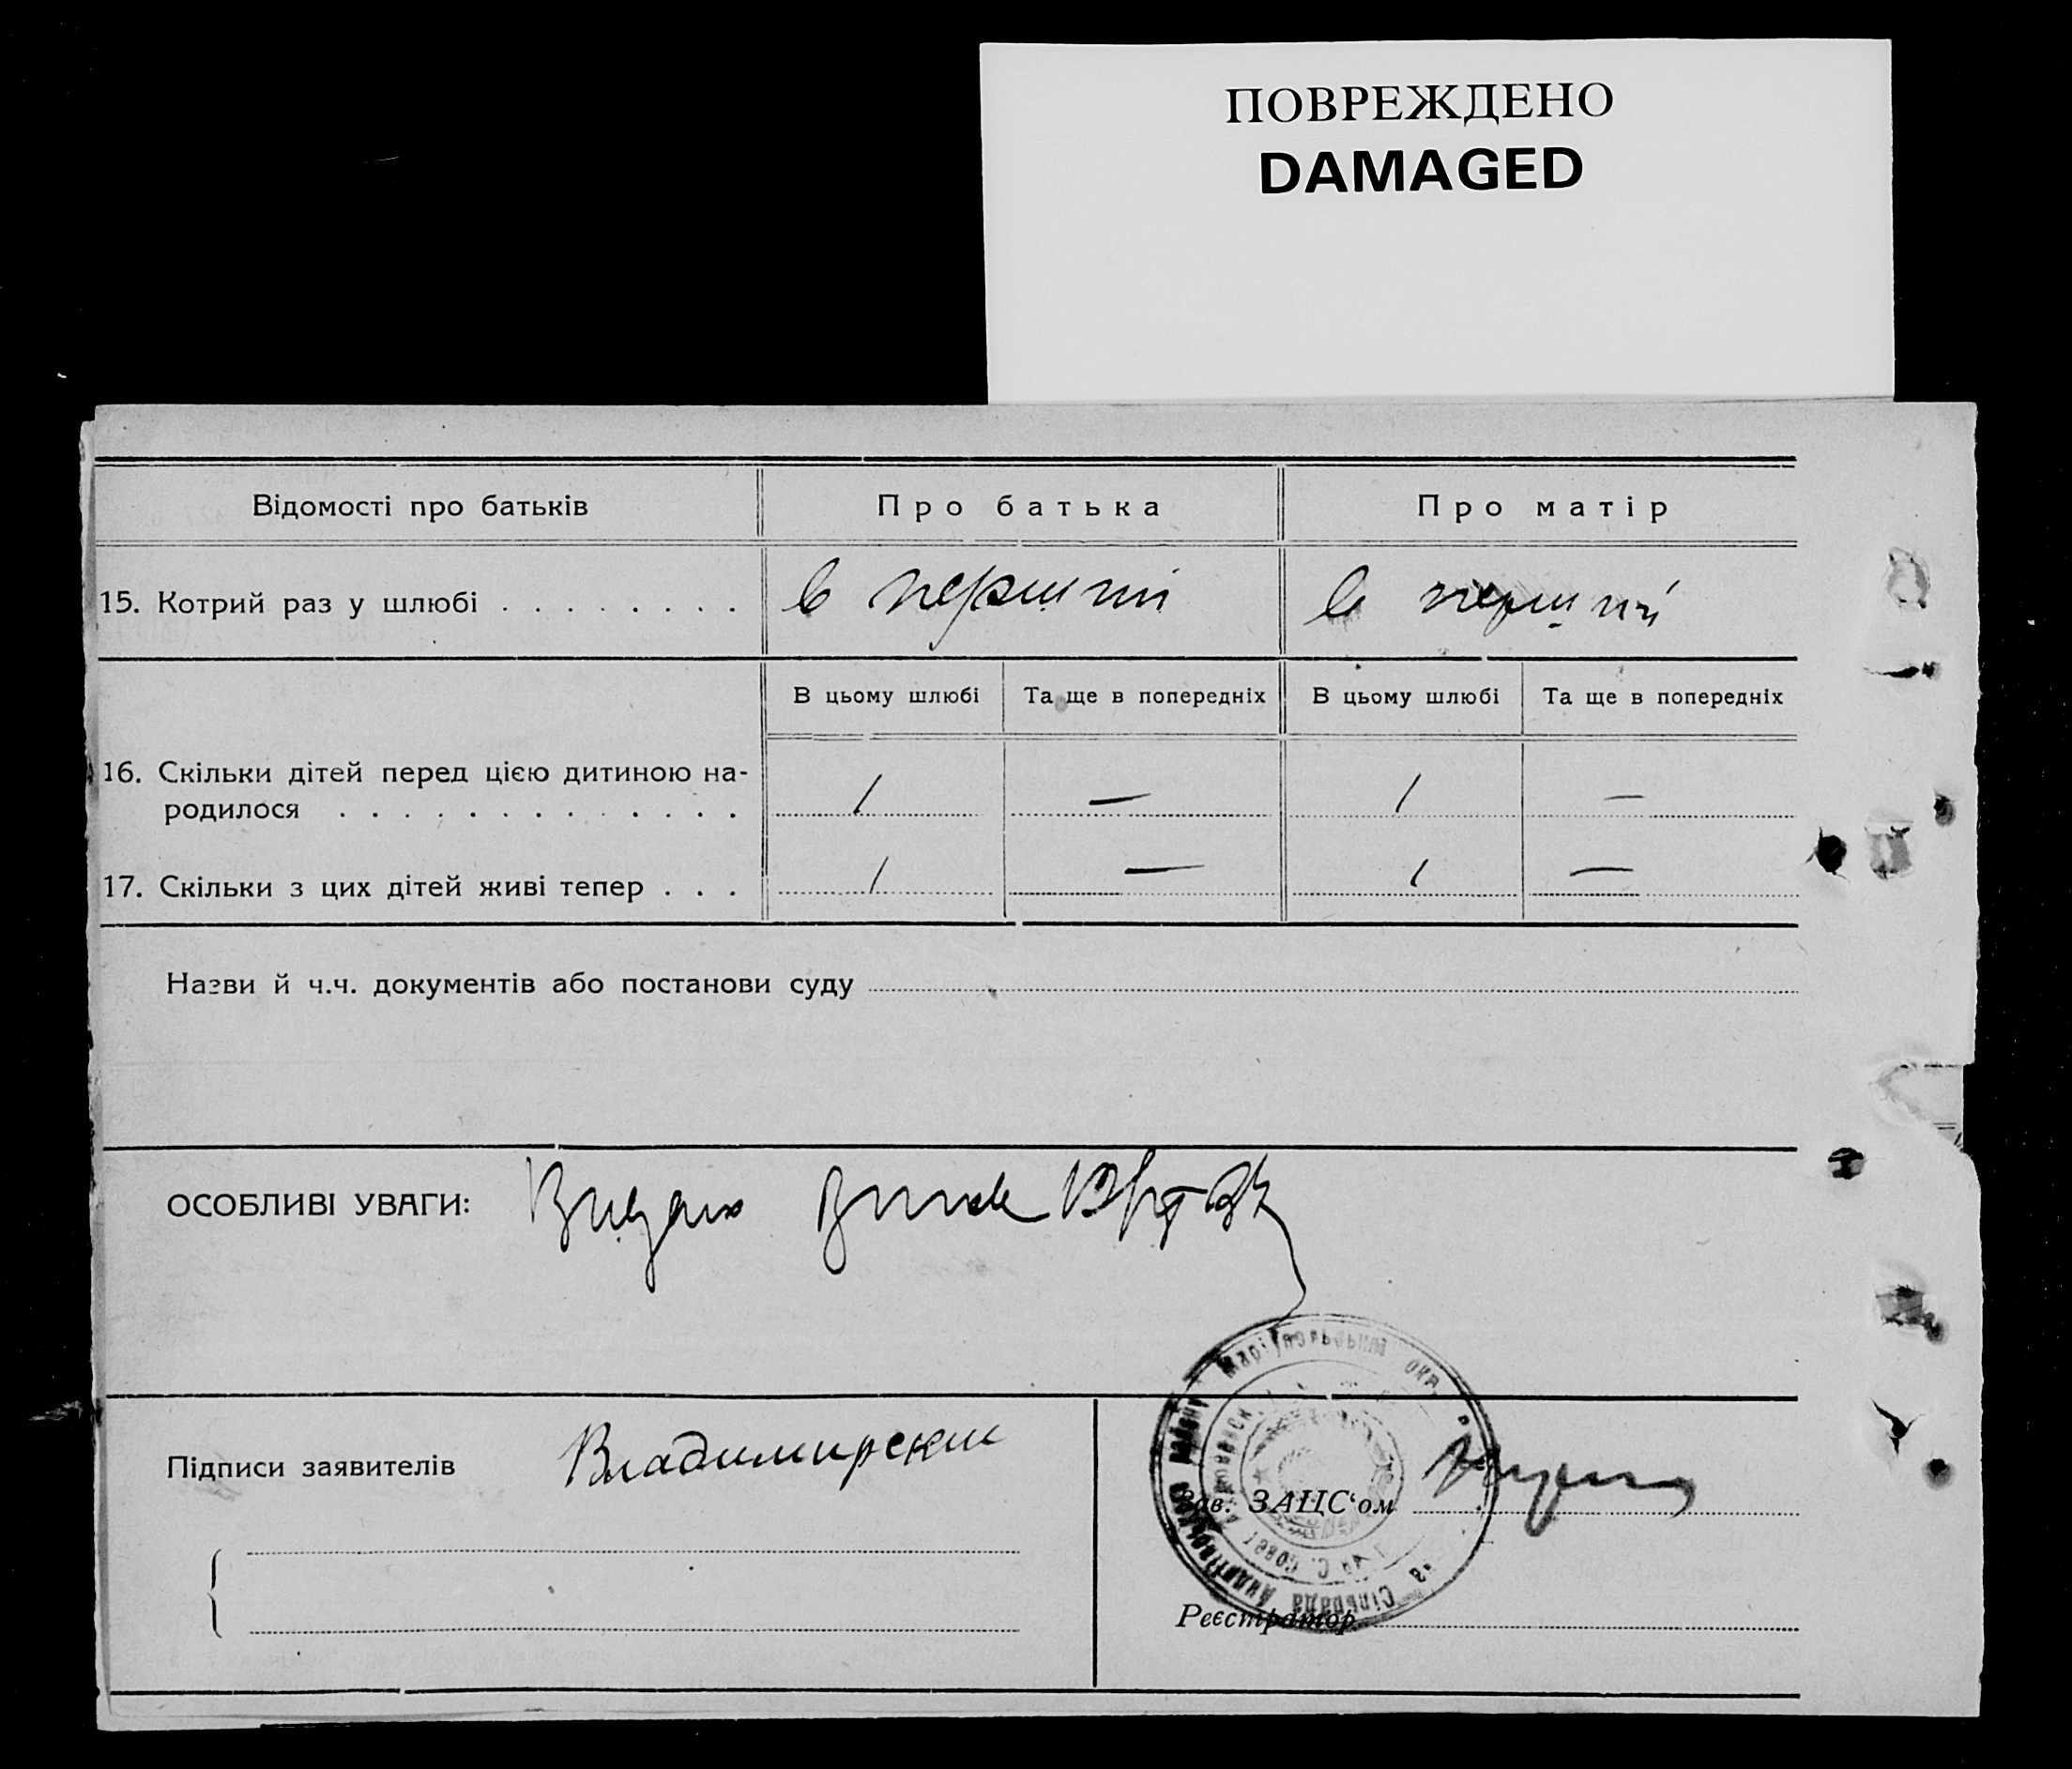 ПОВРЕЖДЕНО
DAMAGED
Відомості про батьків
Про батька
Про матір
15. Котрий раз у шлюбі . . . . . . . .
в перший
в перший
В цьому шлюбі
Та ще в попередніх
В цьому шлюбі
Та ще в попередніх
16. Скільки дітей перед цією дитиною на-
родилося . . . . . . . . . . . . .
1
—
1
—
17. Скільки з цих дітей живі тепер . . .
1
—
1
—
Назви й ч.ч. документів або постанови суду
ОСОБЛИВІ УВАГИ:
Підписи заявителів
Владимирский
Зав. ЗАЦС‘ом
Реєстратор
Маріупольської окр.
Сільрада